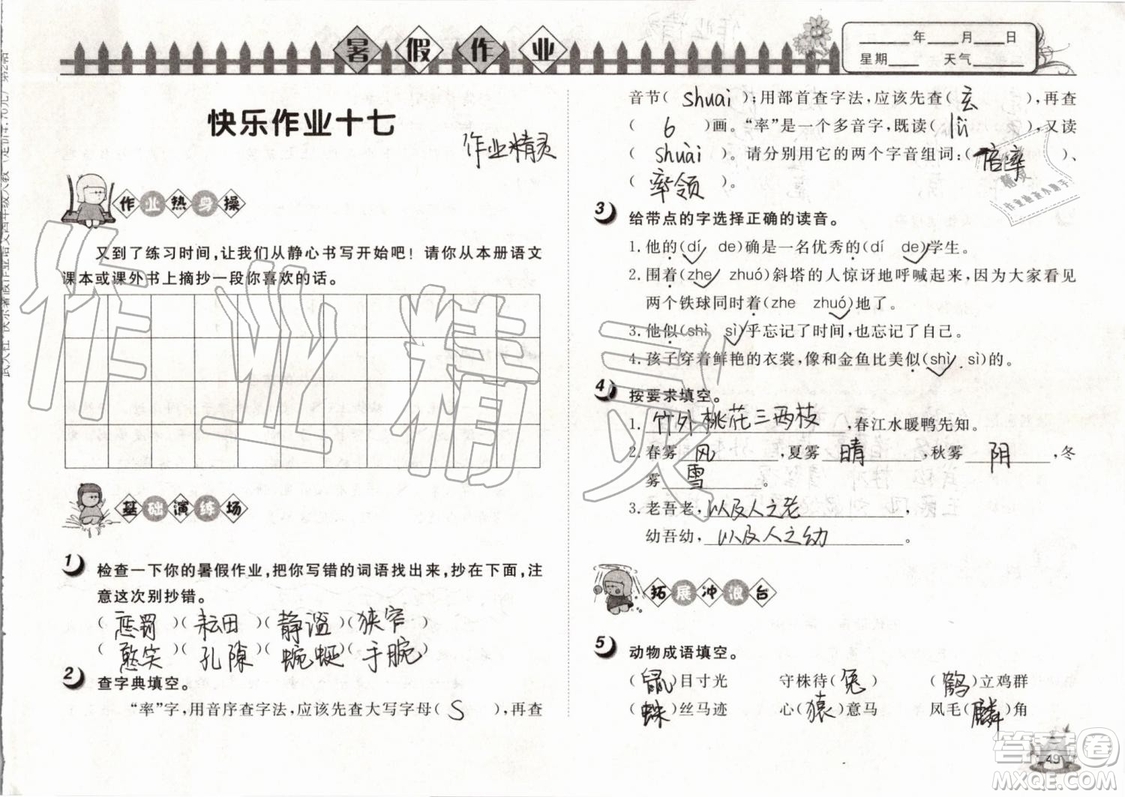 暑假作业
____年____月____日
星期____ 天气____
快乐作业十七
作业精灵
作业热身操
又到了练习时间,让我们从静心书写开始吧!请你从本册语文
课本或课外书上摘抄一段你喜欢的话。
基础演练场
1 检查一下你的暑假作业,把你写错的词语找出来,抄在下面,注
意这次别抄错。
(惩罚)(耘田)(静谧)(狭窄)
(憨笑)(孔隙)(蜿蜒)(手腕)
2 查字典填空。
“率”字,用音序查字法,应该先查大写字母( S ),再查
音节( shuai );用部首查字法,应该先查( 玄 ),再查
( 6 )画。“率”是一个多音字,既读( lǜ ),又读
( shuài )。请分别用它的两个字音组词:( 倍率 )、
( 率领 )
3 给带点的字选择正确的读音。
1. 他的(dí de)确是一名优秀的(dí de)学生。
2. 围着(zhe zhuó)斜塔的人惊讶地呼喊起来,因为大家看见
两个铁球同时着(zhe zhuó)地了。
3. 他似(shì sì)乎忘记了时间,也忘记了自己。
4. 孩子穿着鲜艳的衣裳,像和金鱼比美似(shì sì)的。
4 按要求填空。
1. 竹外桃花三两枝,春江水暖鸭先知。
2. 春雾 风 ,夏雾 晴 ,秋雾 阴 ,冬
雾 雪 。
3. 老吾老, 以及人之老
幼吾幼, 以及人之幼
拓展冲浪台
5 动物成语填空。
(鼠)目寸光 守株待(兔) (鹤)立鸡群
(蛛)丝马迹 心(猿)意马 凤毛(麟)角
作业精灵
答案圈
MXQE.COM
49